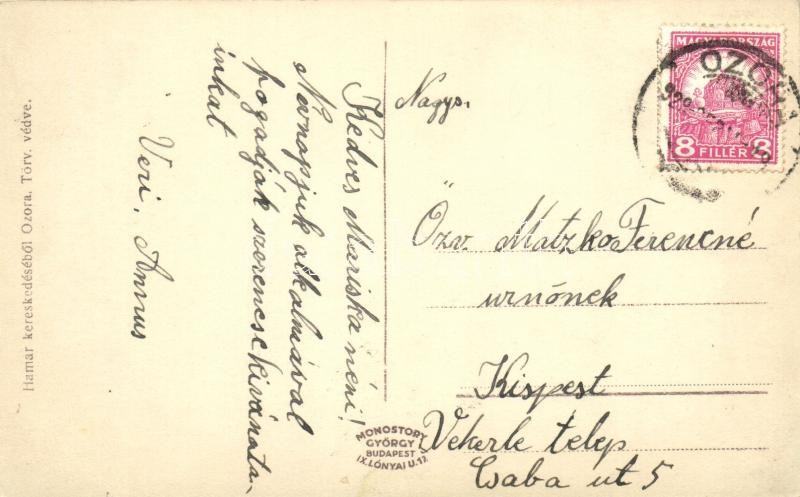 Hamar kereskedéséből Ozora. Törv. védve.
Kedves Mariska néni!
Nevnapjuk alkalmával
fogadják szerencsekivánata-
inkat
Veri, Annus
MONOSTORY
GYÖRGY
BUDAPEST
IX. LÓNYAI U. 12
MAGYARORSZÁG
8 FILLÉR 8
OZORA
Nagys.
Özv. Matzko Ferencné
urnőnek
Kispest
Vekerle telep
Csaba ut 5